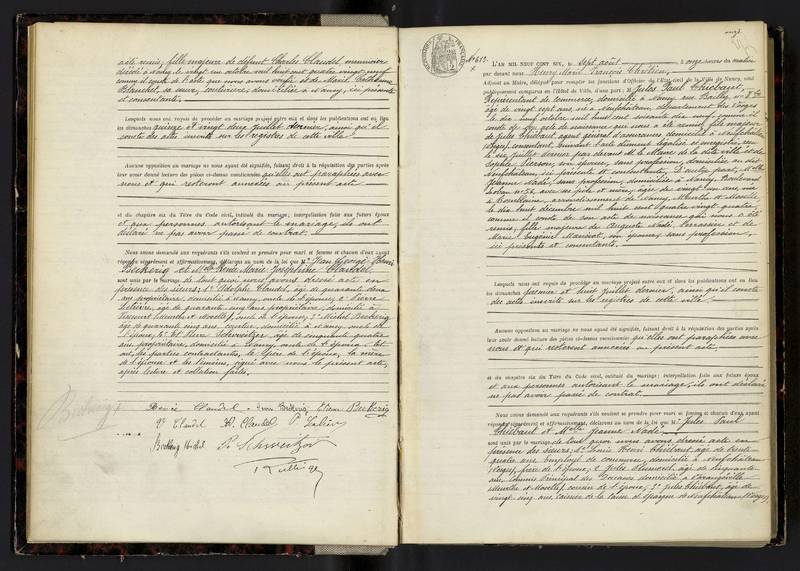 acte remis, fille majeure de défunt Charles Claudel,
décédé à Nancy le vingt un octobre mil huit cent quatre vingt neuf
comme il conste de l'acte que nous avons vérifié et de Marie Catherine
Blanchet, sa veuve, couturière, domiciliée à Nancy, ici présente
et consentante.
Lesquels nous ont requis de procéder au mariage projeté entre eux et dont les publications ont eu lieu
les dimanches quinze et vingt deux Juillet dernier, ainsi qu'il
conste des actes inscrits sur les registres de cette ville
Aucune opposition au mariage ne nous ayant été signifiée, faisant droit à la réquisition des parties après
leur avoir donné lecture des pièces ci-dessus mentionnées qu'elles ont paraphées avec
nous et qui resteront annexées au présent acte
et du chapitre six du Titre du Code civil, intitulé du mariage; interpellation faite aux futurs époux
et aux personnes autorisant le mariage, ils ont
déclaré ne pas avoir passé de contrat.
Nous avons demandé aux requérants s'ils veulent se prendre pour mari et femme et chacun d'eux ayant
répondu séparément et affirmativement, déclarons au nom de la loi que M. Jean George Henri
Beckerig et Melle Renée Marie Joséphine Claudel
sont unis par le mariage de tout quoi nous avons dressé acte en
présence des sieurs: 1° Adolphe Claudel, âgé de quarante deux
ans propriétaire, domicilié à Nancy, oncle de l'épouse; 2° Pierre
âgé de quarante cinq ans, propriétaire, domicilié à
(Meurthe et Moselle), oncle de l'épouse; 3° Michel Beckerig
âgé de quarante cinq ans, domicilié à Nancy, oncle de
l'époux; 4° et Pierre âgé de cinquante quatre
ans propriétaire, domicilié à Nancy, oncle de l'époux. Et
ont, les parties contractantes, le père de l'époux, la mère
de l'épouse et les témoins, signé avec nous le présent acte,
après lecture et collation faites.
Beckerig
Renée Claudel Jean Beckerig Pierre Beckerig
Vve Claudel A. Claudel P.
Beckerig Michel P.
N° 612.
L'AN MIL NEUF CENT SIX, le sept août à onze heures du matin
par devant nous Henry Marie François Chrétien,
Adjoint au Maire, délégué pour remplir les fonctions d'Officier de l'État civil de la Ville de Nancy, sont
publiquement comparus en l'Hôtel de Ville, d'une part: M. Jules Paul Thiébaut,
Représentant de commerce, domicilié à Nancy rue Bailly, N° 8 bis
âgé de vingt sept ans, né à Neufchâteau, département des Vosges,
le dix neuf octobre mil huit cent soixante dix neuf, comme il
conste de son acte de naissance qui nous a été remis, fils majeur
de Jules Thiébaut agent général d'assurances domicilié à Neufchâteau
(Vosges), consentant, suivant l'acte dûment légalisé et enregistré, reçu
le six Juillet dernier par devant M. le Maire de la dite ville et de
Sophie Pierson, son épouse, sans profession, domiciliée au dit
Neufchâteau, ici présente et consentante. D'autre part, Melle
Jeanne Nadé, sans profession, domiciliée à Nancy, Boulevard
Lobau N° 56, avec ses père et mère, âgée de vingt un ans, née
à arrondissement de Nancy, Meurthe et Moselle,
le dix huit décembre mil huit cent quatre vingt quatre,
comme il conste de son acte de naissance qui nous a été
remis, fille majeure de Auguste Nadé, et de
Marie Eugénie son épouse sans profession,
ici présents et consentants.
Lesquels nous ont requis de procéder au mariage projeté entre eux et dont les publications ont eu lieu
les dimanches premier et huit juillet dernier, ainsi qu'il conste
des actes inscrits sur les registres de cette ville.
Aucune opposition au mariage ne nous ayant été signifiée, faisant droit à la réquisition des parties après
leur avoir donné lecture des pièces ci-dessus mentionnées qu'elles ont paraphées avec
nous et qui resteront annexées au présent acte.
et du chapitre six du Titre du Code civil, intitulé du mariage; interpellation faite aux futurs époux
et aux personnes autorisant le mariage, ils ont déclaré
ne pas avoir passé de contrat.
Nous avons demandé aux requérants s'ils veulent se prendre pour mari et femme et chacun d'eux, ayant
répondu séparément et affirmativement, déclarons au nom de la loi que M. Jules Paul
Thiébaut et Melle Jeanne Nadé
sont unis par le mariage de tout quoi nous avons dressé acte en
présence des sieurs: 1° Louis Henri Thiébaut, âgé de trente
quatre ans, employé de commerce, domicilié à Neufchâteau
(Vosges), frère de l'époux; 2° Jules âgé de cinquante
ans, commis Principal des Douanes domicilié à
(Meurthe et Moselle), cousin de l'époux; 3° Jules Thiébaut, âgé de
vingt cinq ans, caissier de la caisse d'épargne de Neufchâteau (Vosges),